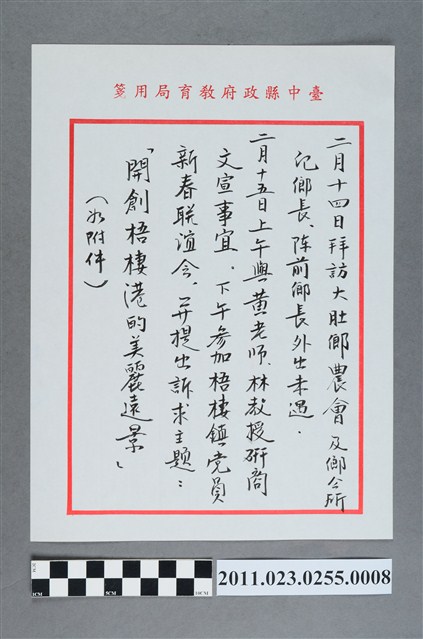 臺中縣政府教育局用箋
二月十四日拜訪大肚鄉農會及鄉公所
紀鄉長、陈前鄉長外出未遇.
二月十五日上午與黃老师、林教授研商
文宣事宜.下午参加梧棲鎮党員
新春联誼会、并提出訴求主題:
「開創梧棲港的美麗遠景」
(如附件)
1CM
5CM
10CM
2011.023.0255.0008